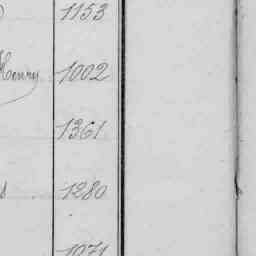 1153
Henry 1002
1361
1280
1071